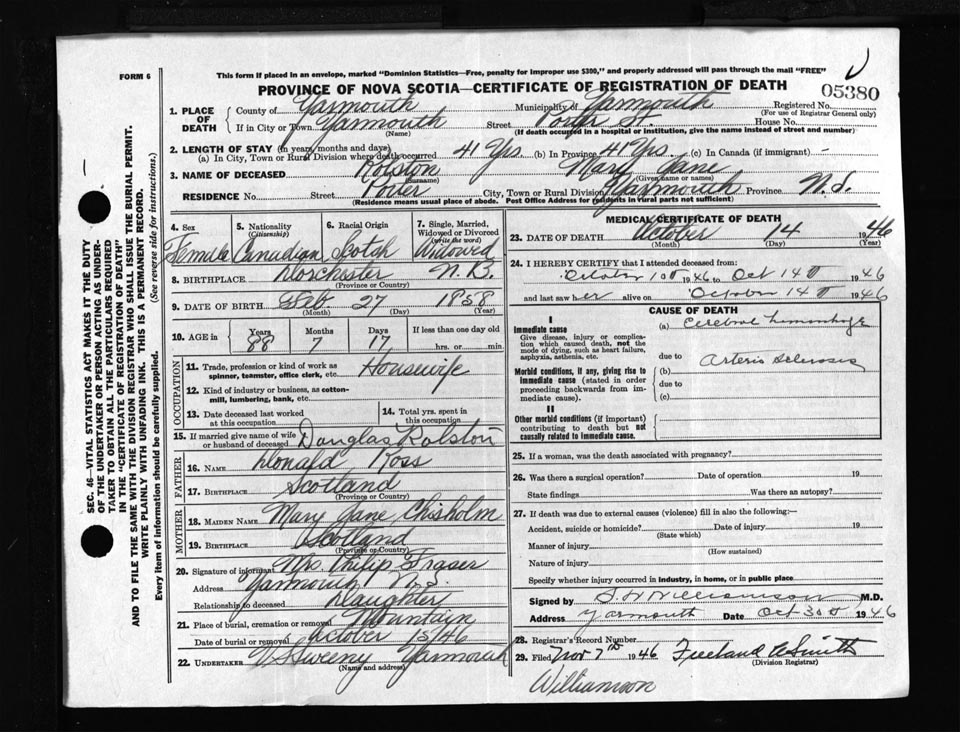 This form if placed in an envelope, marked "Dominion Statistics—Free, penalty for improper use $300," and properly addressed will pass through the mail "FREE"
FORM 6
PROVINCE OF NOVA SCOTIA—CERTIFICATE OF REGISTRATION OF DEATH
05380
1. PLACE OF DEATH
County of Yarmouth Municipality of Yarmouth Registered No.
(For use of Registrar General only)
If in City or Town Yarmouth Street Porter St. House No.
(Name) (If death occurred in a hospital or institution, give the name instead of street and number)
2. LENGTH OF STAY (in years, months and days)
(a) In City, Town or Rural Division where death occurred 41 Yrs (b) In Province 41 Yrs. (c) In Canada (if immigrant) -
3. NAME OF DECEASED Rolston Mary Jane
(Surname) (Given name or names)
RESIDENCE No. Street Porter City, Town or Rural Division Yarmouth Province N.S.
(Residence means usual place of abode. Post Office Address for residents in rural parts not sufficient)
4. Sex Female
5. Nationality (Citizenship) Canadian
6. Racial Origin Scotch
7. Single, Married, Widowed or Divorced (write the word) Widowed
8. BIRTHPLACE Dorchester N.B.
(Province or Country)
9. DATE OF BIRTH Feb. 27 1858
(Month) (Day) (Year)
10. AGE in Years 88 Months 7 Days 17 If less than one day old hrs. or min.
OCCUPATION
11. Trade, profession or kind of work as spinner, teamster, office clerk, etc. Housewife
12. Kind of industry or business, as cotton-mill, lumbering, bank, etc.
13. Date deceased last worked at this occupation
14. Total yrs. spent in this occupation
15. If married give name of wife or husband of deceased Douglas Rolston
FATHER
16. NAME Donald Ross
17. BIRTHPLACE Scotland
(Province or Country)
MOTHER
18. MAIDEN NAME Mary Jane Chisholm
19. BIRTHPLACE Scotland
(Province or Country)
20. Signature of informant Mrs. Philip Fraser
Address Yarmouth N.S.
Relationship to deceased Daughter
21. Place of burial, cremation or removal Mountain
Date of burial or removal October 15/46
22. UNDERTAKER V S Sweeny Yarmouth
(Name and address)
MEDICAL CERTIFICATE OF DEATH
23. DATE OF DEATH October 14 1946
(Month) (Day) (Year)
24. I HEREBY CERTIFY that I attended deceased from:
October 10th 1946 to Oct 14th 1946
and last saw her alive on October 14th 1946
CAUSE OF DEATH
I
Immediate cause
Give disease, injury or complication which caused death, not the mode of dying, such as heart failure, asphyxia, asthenia, etc.
(a) Cerebral hemorrhage
due to
Morbid conditions, if any, giving rise to immediate cause (stated in order proceeding backwards from immediate cause).
(b) Arterio Sclerosis
due to
(c)
II
Other morbid conditions (if important) contributing to death but not causally related to immediate cause.
25. If a woman, was the death associated with pregnancy?
26. Was there a surgical operation? Date of operation 19
State findings Was there an autopsy?
27. If death was due to external causes (violence) fill in also the following:—
Accident, suicide or homicide? Date of injury 19
(State which)
Manner of injury
(How sustained)
Nature of injury
Specify whether injury occurred in industry, in home, or in public place
Signed by S. W Williamson M.D.
Address Yarmouth Date Oct 30th 1946
28. Registrar's Record Number
29. Filed Nov 7th 1946 Freeland A Smith
(Division Registrar)
Williamson
SEC. 46—VITAL STATISTICS ACT MAKES IT THE DUTY
OF THE UNDERTAKER OR PERSON ACTING AS UNDER-
TAKER TO OBTAIN ALL THE PARTICULARS REQUIRED
IN THE "CERTIFICATE OF REGISTRATION OF DEATH"
AND TO FILE THE SAME WITH THE DIVISION REGISTRAR WHO SHALL ISSUE THE BURIAL PERMIT.
WRITE PLAINLY WITH UNFADING INK. THIS IS A PERMANENT RECORD.
Every item of information should be carefully supplied. (See reverse side for instructions.)